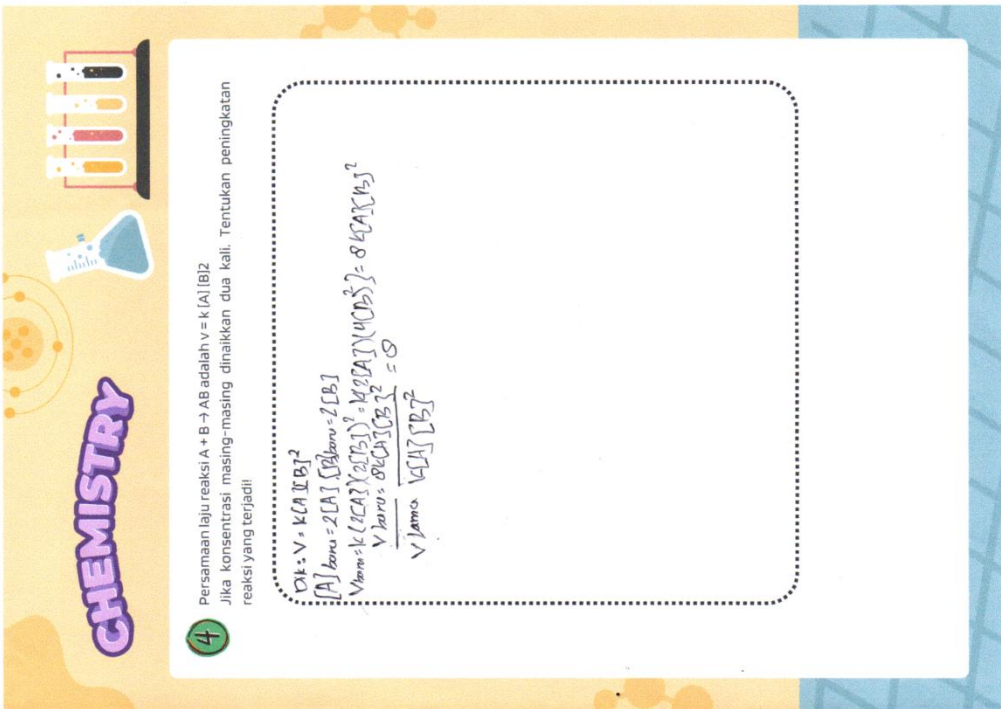 CHEMISTRY
4
Persamaan laju reaksi A + B → AB adalah v = k [A] [B]2
Jika konsentrasi masing-masing dinaikkan dua kali. Tentukan peningkatan
reaksi yang terjadi!
Dik : V = K[A][B]²
[A] baru = 2[A] . [B] baru = 2[B]
V baru = K(2[A])(2[B])² = K(2[A])(4[B]²) = 8K[A][B]²
V baru = 8K[A][B]² = 8
V lama K[A][B]²